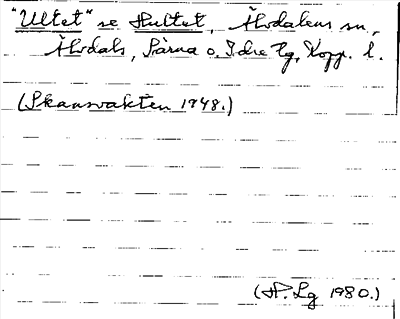 "Ultet" se Hultet, Älvdalens sn,
Älvdals, Särna o. Idre tg, Kopp. l.
(Skansvakten 1948.)
(H. Lg 1980.)